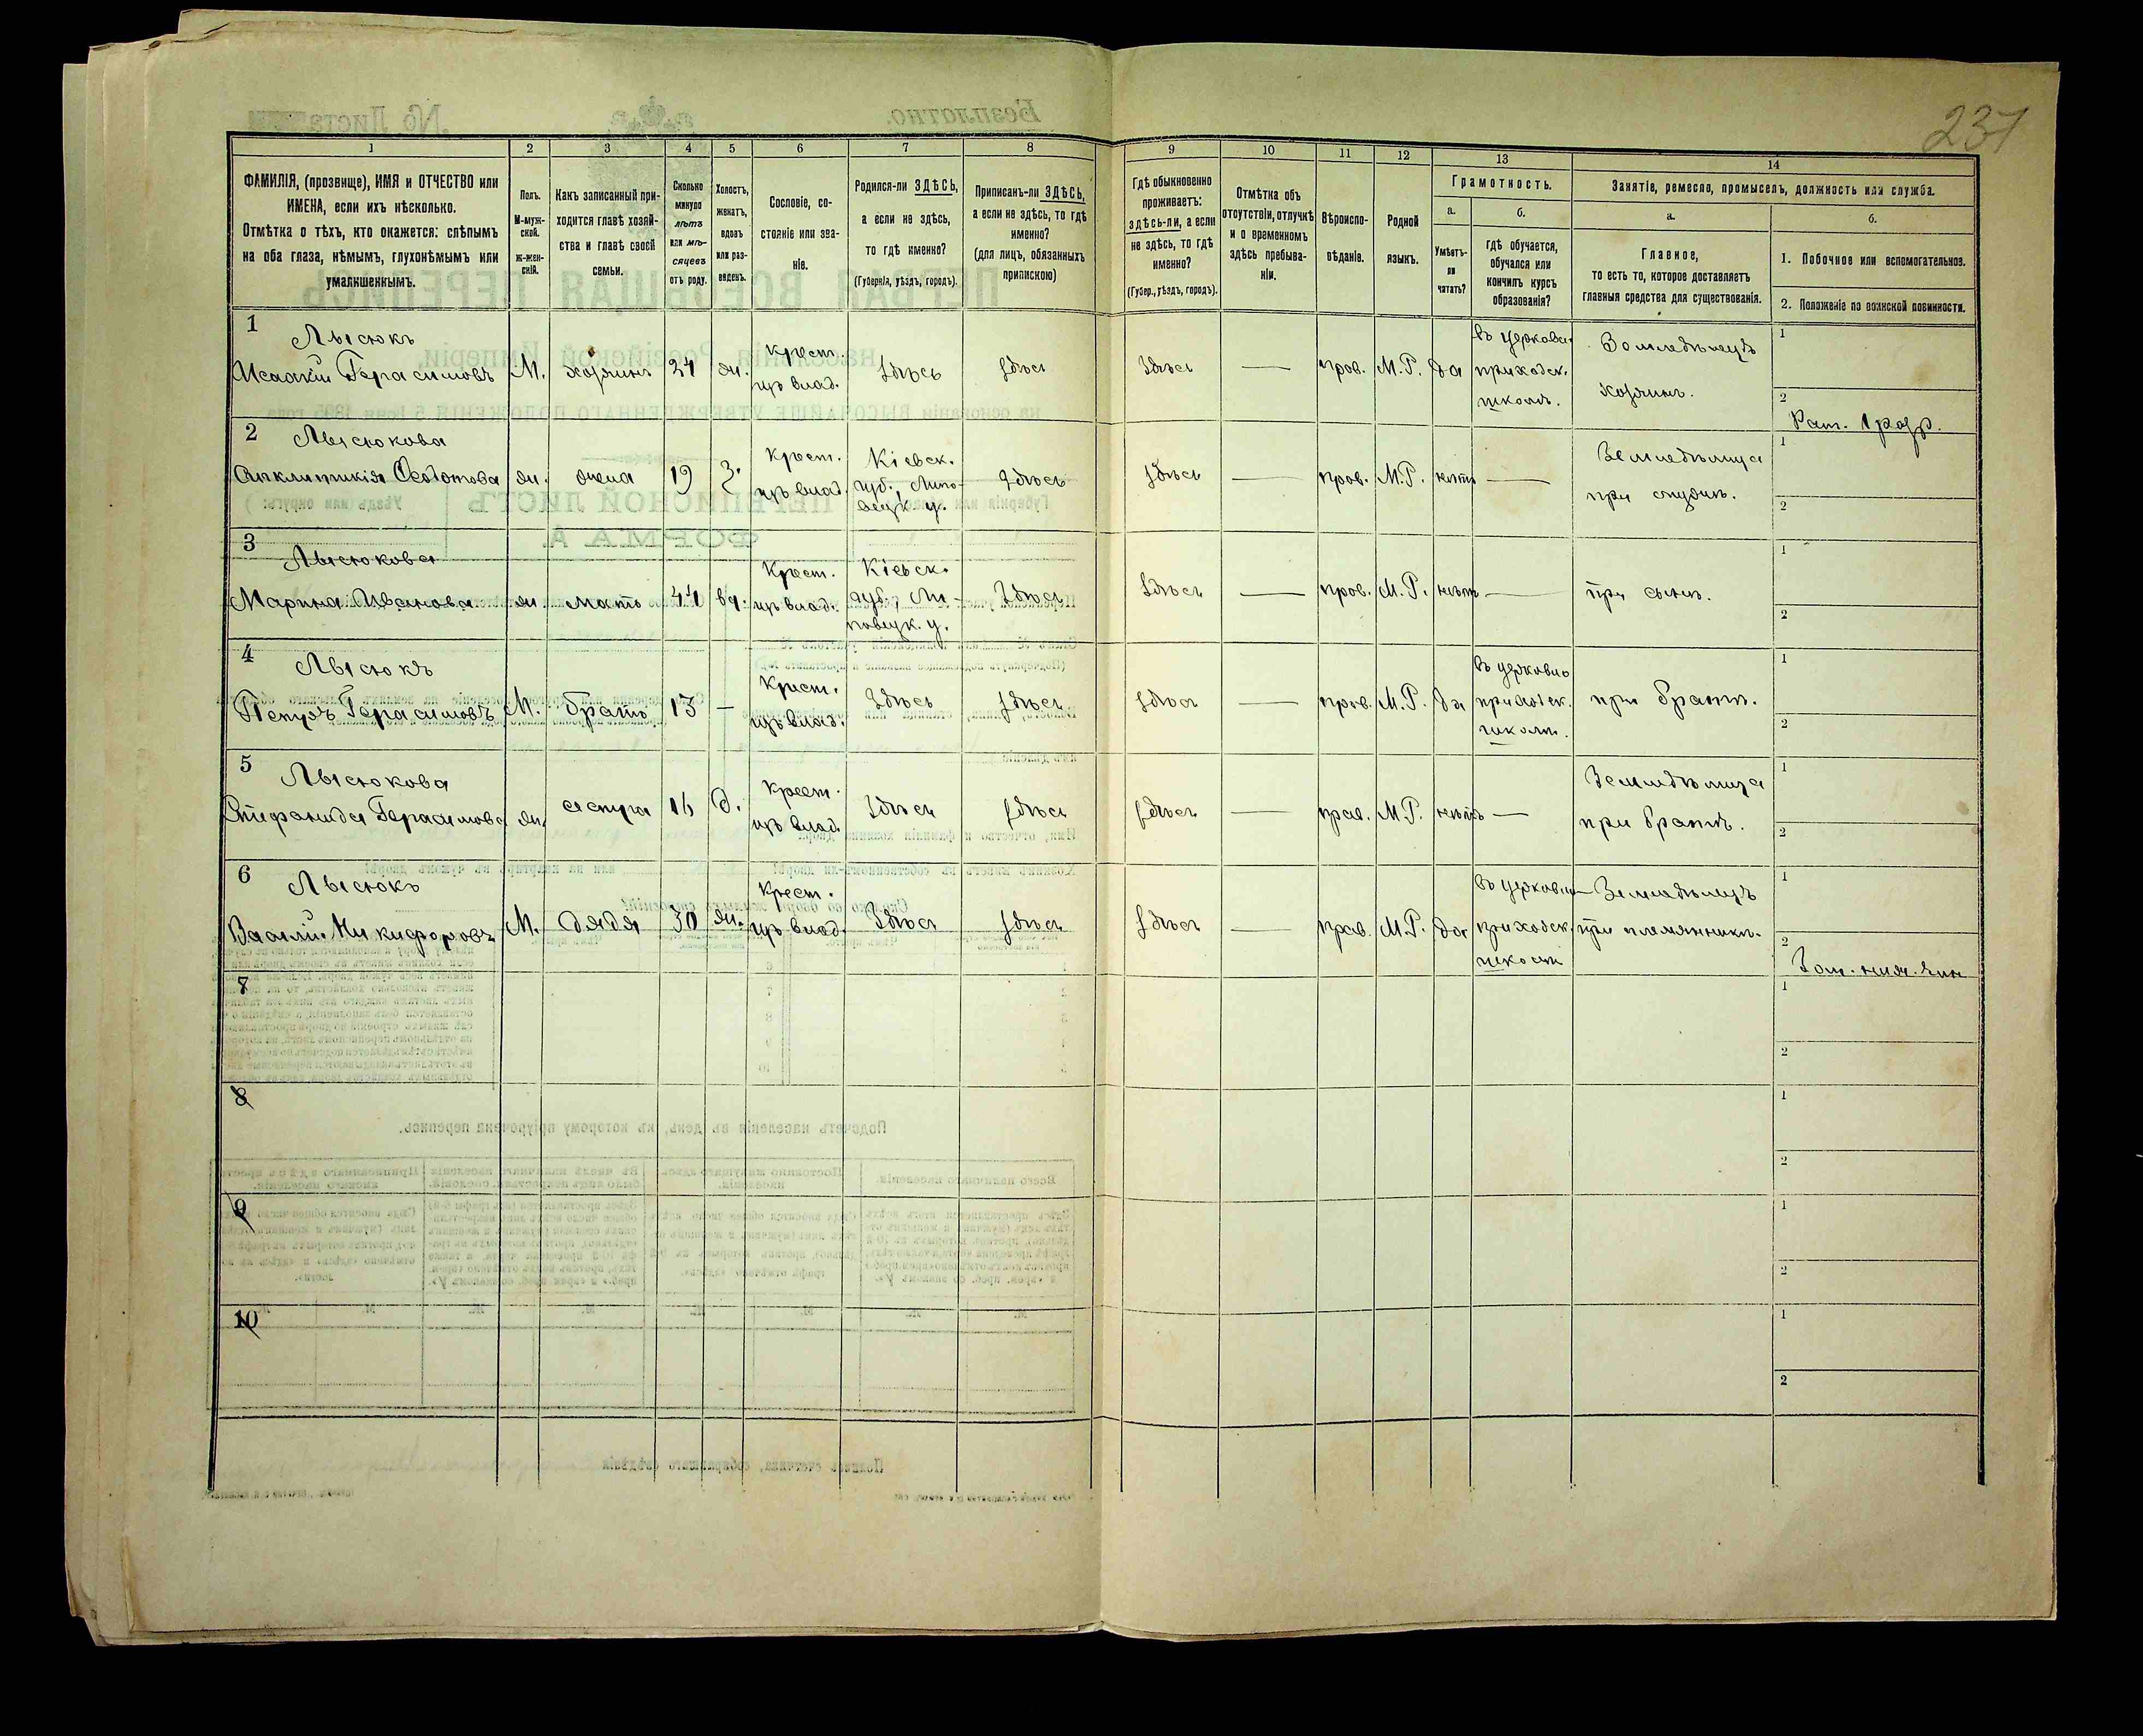 237
1 2 3 4 5 6 7 8 9 10 11 12 13 14
ФАМИЛІЯ, (прозвище), ИМЯ и ОТЧЕСТВО или
ИМЕНА, если ихъ нѣсколько.
Отмѣтка о тѣхъ, кто окажется: слѣпымъ
на оба глаза, нѣмымъ, глухонѣмымъ или
умалишеннымъ.
Полъ.
М-муж-
ской.
Ж-жен-
скій.
Какъ записанный при-
ходится главѣ хозяй-
ства и главѣ своей
семьи.
Сколько
минуло
лѣтъ
или мѣ-
сяцевъ
отъ роду.
Холостъ,
женатъ,
вдовъ
или раз-
веденъ.
Сословіе, со-
стояніе или зва-
ніе.
Родился-ли ЗДѢСЬ,
а если не здѣсь,
то гдѣ именно?
(Губернія, уѣздъ, городъ).
Приписанъ-ли ЗДѢСЬ,
а если не здѣсь, то гдѣ
именно?
(для лицъ, обязанныхъ
припискою)
Гдѣ обыкновенно
проживаетъ:
здѣсь-ли, а если
не здѣсь, то гдѣ
именно?
(Губер., уѣздъ, городъ).
Отмѣтка объ
отсутствіи, отлучкѣ
и о временномъ
здѣсь пребыва-
ніи.
Вѣроиспо-
вѣданіе.
Родной
языкъ.
Грамотность.
а.
Умѣетъ-
ли
читать?
б.
гдѣ обучается,
обучался или
кончилъ курсъ
образованія?
Занятіе, ремесло, промыселъ, должность или служба.
а.
Главное,
то есть то, которое доставляетъ
главныя средства для существованія.
б.
1. Побочное или вспомогательное.
2. Положеніе по воинской повинности.
1 Лысюкъ
Исаакій Герасимовъ М. хозяинъ 24 ж. Крест. изъ влад. Здѣсь Здѣсь Здѣсь — прав. М.Р. да въ церковн. приходск. школѣ. Земледѣлецъ хозяинъ. 1
2 Рат. 1 разр.
2 Лысюкова
Ѳеодотова ж. жена 19 З. Крест. изъ влад. Кіевск. губ., Липовецк. у. Здѣсь Здѣсь — прав. М.Р. нѣтъ — Земледѣлица при мужѣ. 1
2
3 Лысюкова
Марина Иванова ж. мать 44 вд. Крест. изъ влад. Кіевск. губ., Ли-
повецк. у. Здѣсь Здѣсь — прав. М.Р. нѣтъ — при сынѣ. 1
2
4 Лысюкъ
Петръ Герасимовъ М. братъ 13 — Крест. изъ влад. Здѣсь Здѣсь Здѣсь — прав. М.Р. да въ церковно приходск. школѣ. при братѣ. 1
2
5 Лысюкова
Стефанида Герасимова ж. сестра 16 д. Крест. изъ влад. Здѣсь Здѣсь Здѣсь — прав. М.Р. нѣтъ — Земледѣлица при братѣ. 1
2
6 Лысюкъ
Василій Никифоровъ М. дядя 30 ж. Крест. изъ влад. Здѣсь Здѣсь Здѣсь — прав. М.Р. да въ церковно приходск. школѣ Земледѣлецъ при племянникѣ. 1
2 Зап. ниж. чин
7 1
2
8 1
2
9 1
2
10 1
2